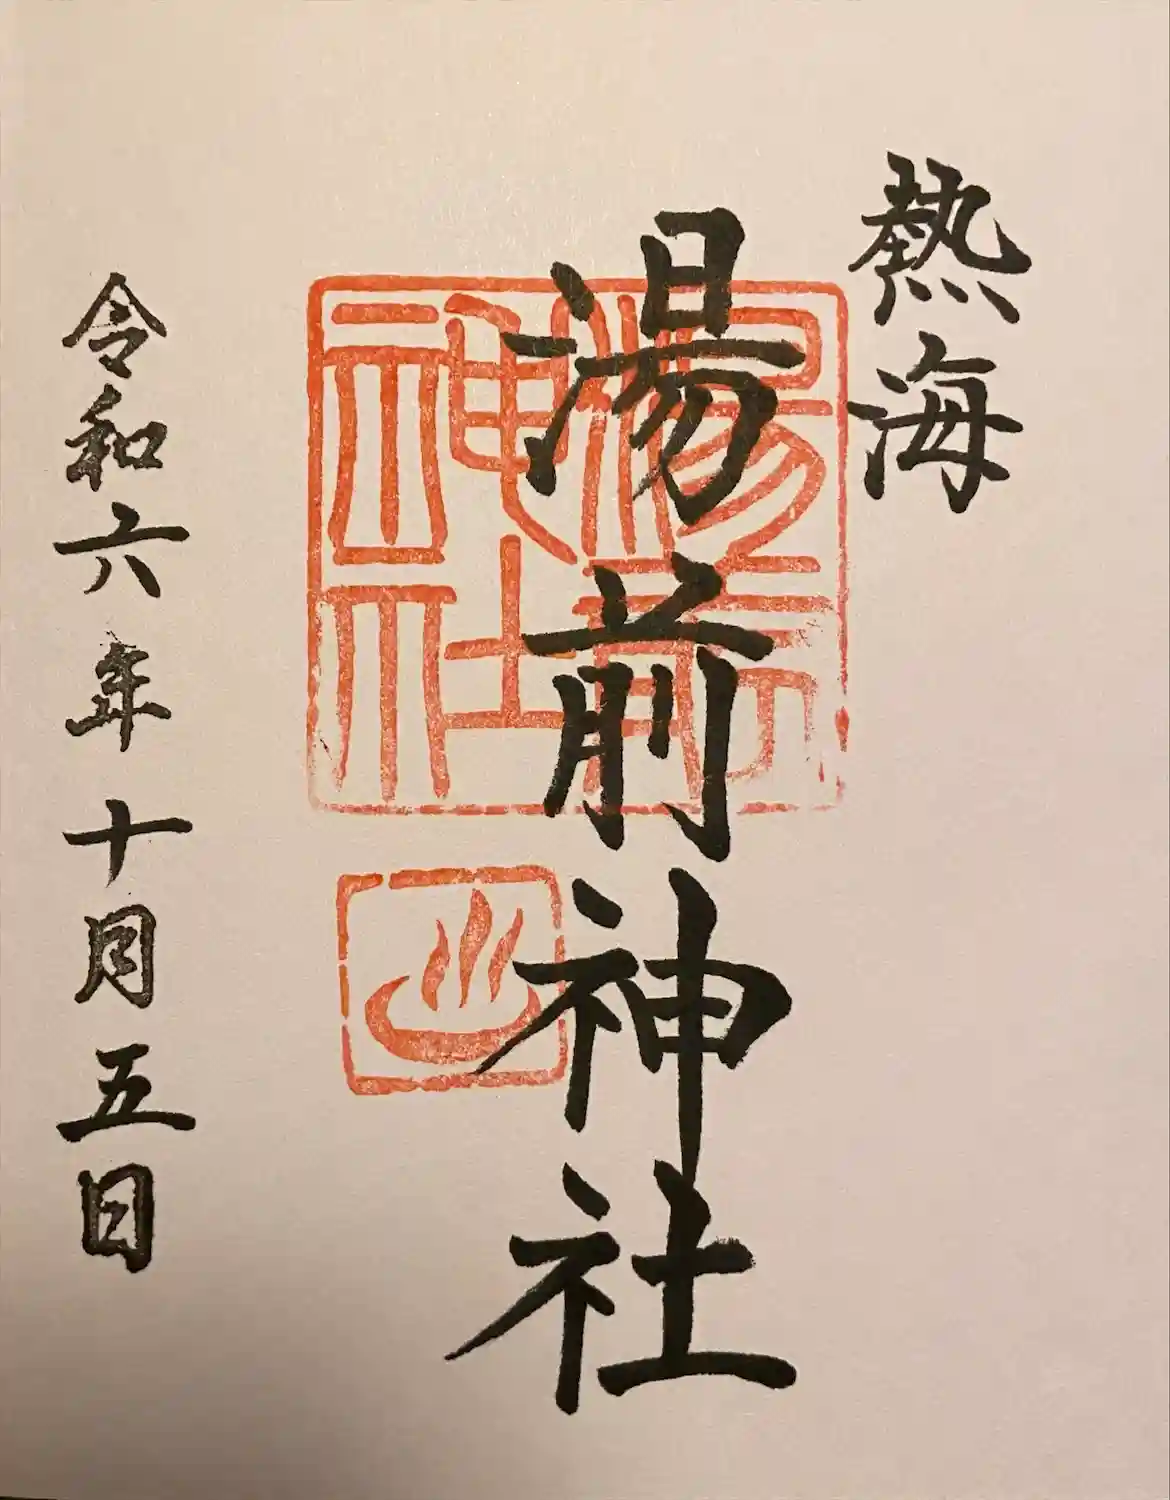 熱海
湯前神社
湯前神社
令和六年十月五日